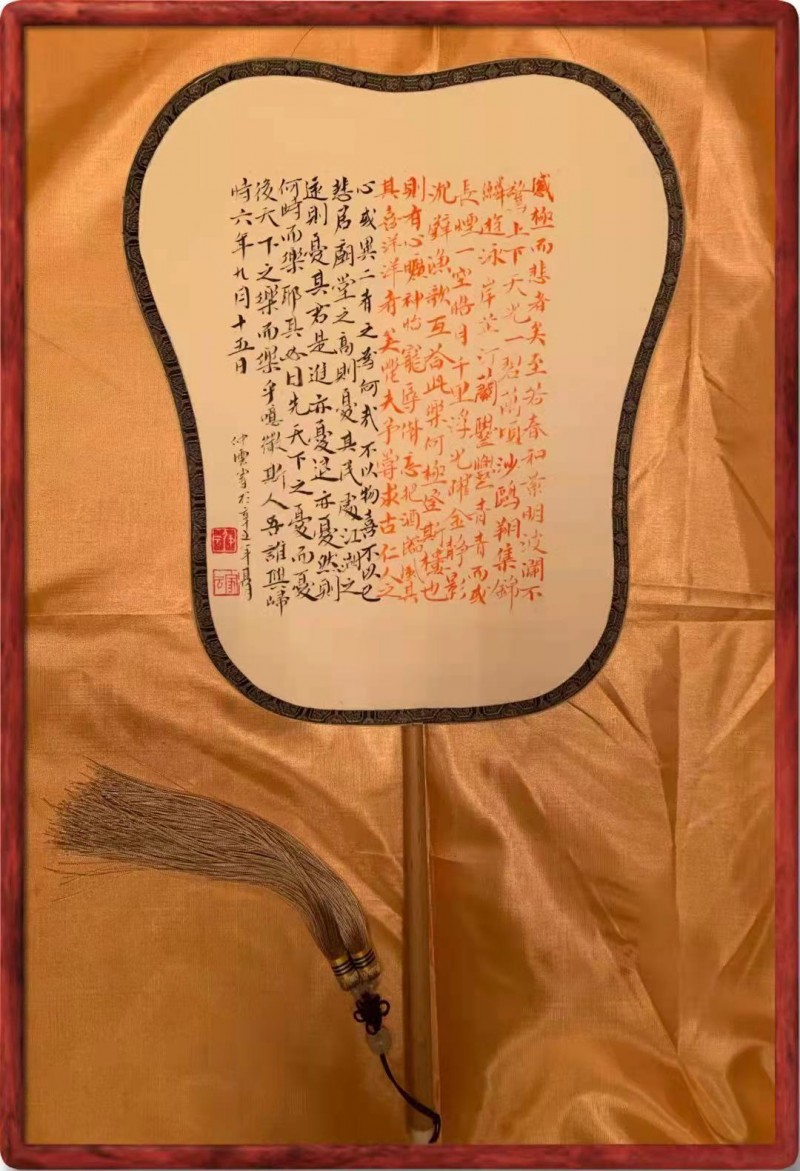 感極而悲者矣至若春和景明波瀾不
驚上下天光一碧萬頃沙鷗翔集錦
鱗遊泳岸芷汀蘭鬱鬱青青而或
長煙一空皓月千里浮光躍金靜影
沉璧漁歌互答此樂何極登斯樓也
則有心曠神怡寵辱偕忘把酒臨風其
其喜洋洋者矣嗟夫予嘗求古仁人之
心或異二者之為何哉不以物喜不以己
悲居廟堂之高則憂其民處江湖之
遠則憂其君是進亦憂退亦憂然則
何時而樂耶其必曰先天下之憂而憂
後天下之樂而樂乎噫微斯人吾誰與歸
時六年九月十五日
仲雲書於辛丑年夏